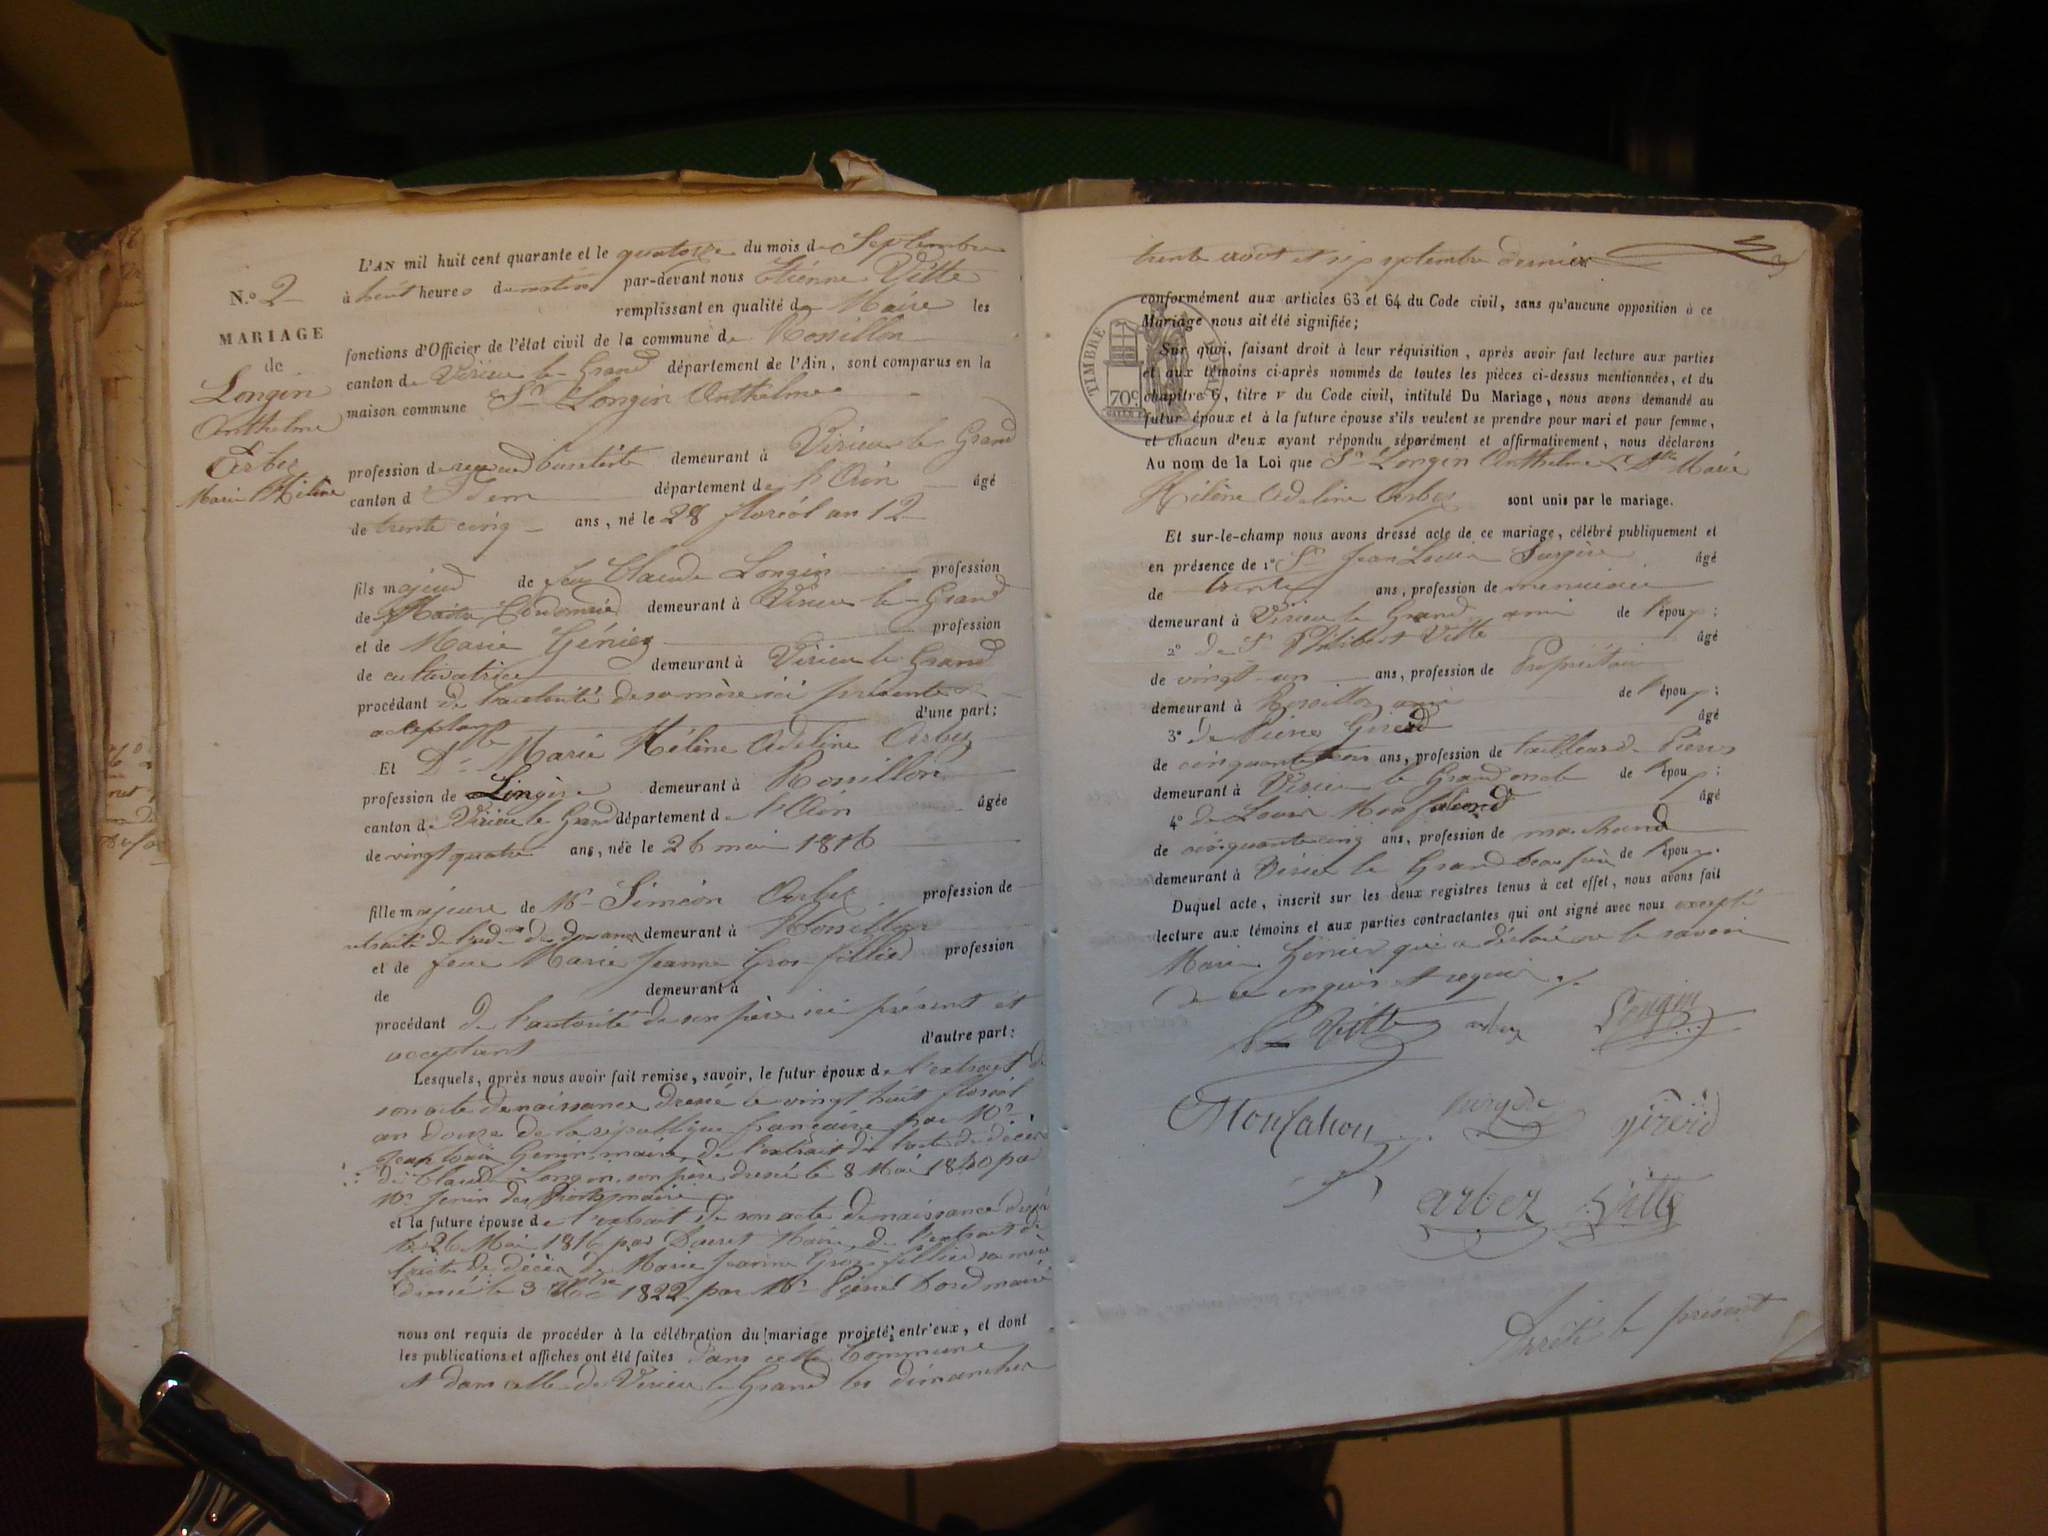 N.º 2
MARIAGE
de
Longin
Anthelme
Arbez
Marie Hélène
L'AN mil huit cent quarante et le quatorze du mois de Septembre
à huit heures du matin par-devant nous Etienne Vitte
remplissant en qualité de Maire les
fonctions d'Officier de l'état civil de la commune de Rossillon
canton de Virieu le Grand département de l'Ain, sont comparus en la
maison commune Sr Longin Anthelme
profession de demeurant à Virieu le Grand
canton d Idem département de l'Ain âgé
de trente cinq ans, né le 28 floréal an 12
fils majeur de feu Claude Longin profession
de demeurant à Virieu le Grand
et de Marie Génier profession
de cultivatrice demeurant à Virieu le Grand
procédant de l'autorité de sa mère ici présente
acceptant d'une part;
Et Dlle Marie Hélène Adeline Arbez
profession de Lingère demeurant à Rossillon
canton de Virieu le Grand département de l'Ain âgée
de vingt quatre ans, née le 26 mai 1816
fille majeure de Mr Siméon Arbez profession de
retraité de des douanes demeurant à Rossillon
et de feue Marie Jeanne Gros fillier profession
de demeurant à
procédant de l'autorité de son père ici présent et
acceptant d'autre part:
Lesquels, après nous avoir fait remise, savoir, le futur époux de l'extrait de
son acte de naissance dressé le vingt huit floréal
an douze de la république française par Mr
Jean Louis maire, de l'extrait de l'acte de décès
de Claude Longin son père dressé le 8 Mai 1840 par
Mr maire
et la future épouse de l'extrait de son acte de naissance dressé
le 26 Mai 1816 par Maire, de l'extrait de
l'acte de décès de Marie Jeanne Gros fillier sa mère
dressé le 3 1822 par Mr maire
nous ont requis de procéder à la célébration du mariage projeté entr'eux, et dont
les publications et affiches ont été faites dans cette Commune
et dans celle de Virieu le Grand les dimanches
trente août et six septembre dernier
conformément aux articles 63 et 64 du Code civil, sans qu'aucune opposition à ce
Mariage nous ait été signifiée;
TIMBRE ROYAL
70c
Sur quoi, faisant droit à leur réquisition, après avoir fait lecture aux parties
et aux témoins ci-après nommés de toutes les pièces ci-dessus mentionnées, et du
chapitre 6, titre v du Code civil, intitulé Du Mariage, nous avons demandé au
futur époux et à la future épouse s'ils veulent se prendre pour mari et pour femme,
et chacun d'eux ayant répondu séparément et affirmativement, nous déclarons
Au nom de la Loi que Sr Longin Anthelme et Dlle Marie
Hélène Adeline Arbez sont unis par le mariage.
Et sur-le-champ nous avons dressé acte de ce mariage, célébré publiquement et
en présence de 1º Sr Jean Louis Surgère âgé
de trente ans, profession de menuisier
demeurant à Virieu le Grand ami de l'époux;
2º de Sr Philibert Vitte âgé
de vingt un ans, profession de Propriétaire
demeurant à Rossillon ami de l'époux;
3º de Pierre Girerd âgé
de cinquante ans, profession de tailleur de Pierres
demeurant à Virieu le Grand oncle de l'époux;
4º de Louis Monfalcond âgé
de cinquante cinq ans, profession de marchand
demeurant à Virieu le Grand beau frère de l'époux.
Duquel acte, inscrit sur les deux registres tenus à cet effet, nous avons fait
lecture aux témoins et aux parties contractantes qui ont signé avec nous excepté
Marie Génier qui a déclaré ne le savoir
de ce enquise et requise
Vitte arbez Longin
Monfalcon Surgère girerd
arbez Vitte
Arrêté le présent